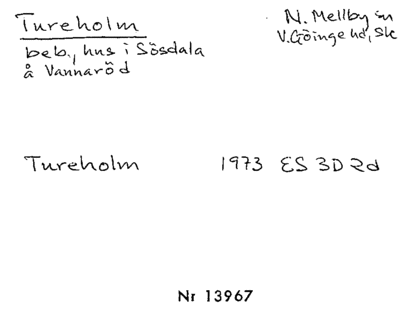 Tureholm
N. Mellby sn
V. Göinge hd, Sk
beb., hus i Sösdala
å Vannaröd
Tureholm 1973 ES 3D 2d
Nr 13967